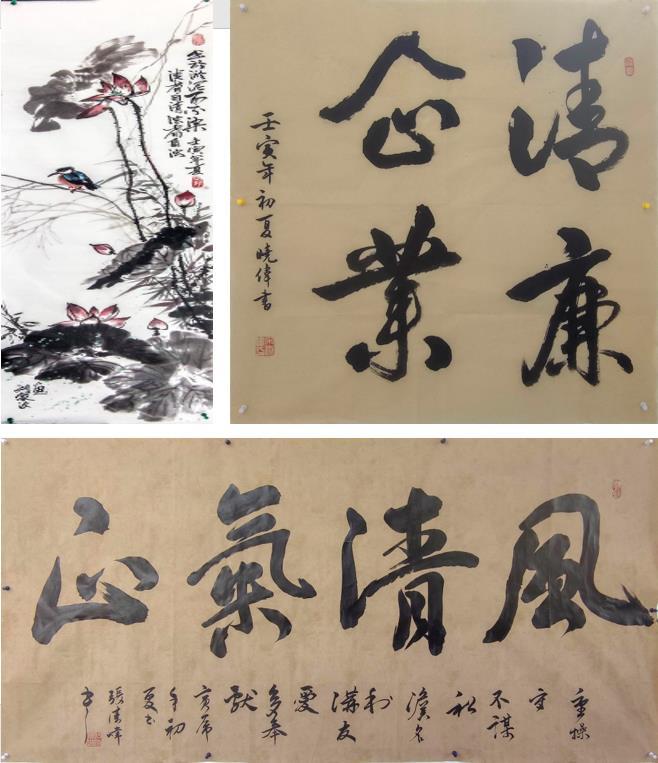 出於淤泥而不染壬寅年夏
清者自清濁者自濁
清廉
企業
壬寅年初夏曉偉書
風清氣正
重操
守
不謀
私
淡名
利
講友
愛
多奉
獻
寅虎
年初
夏
張清峰
書